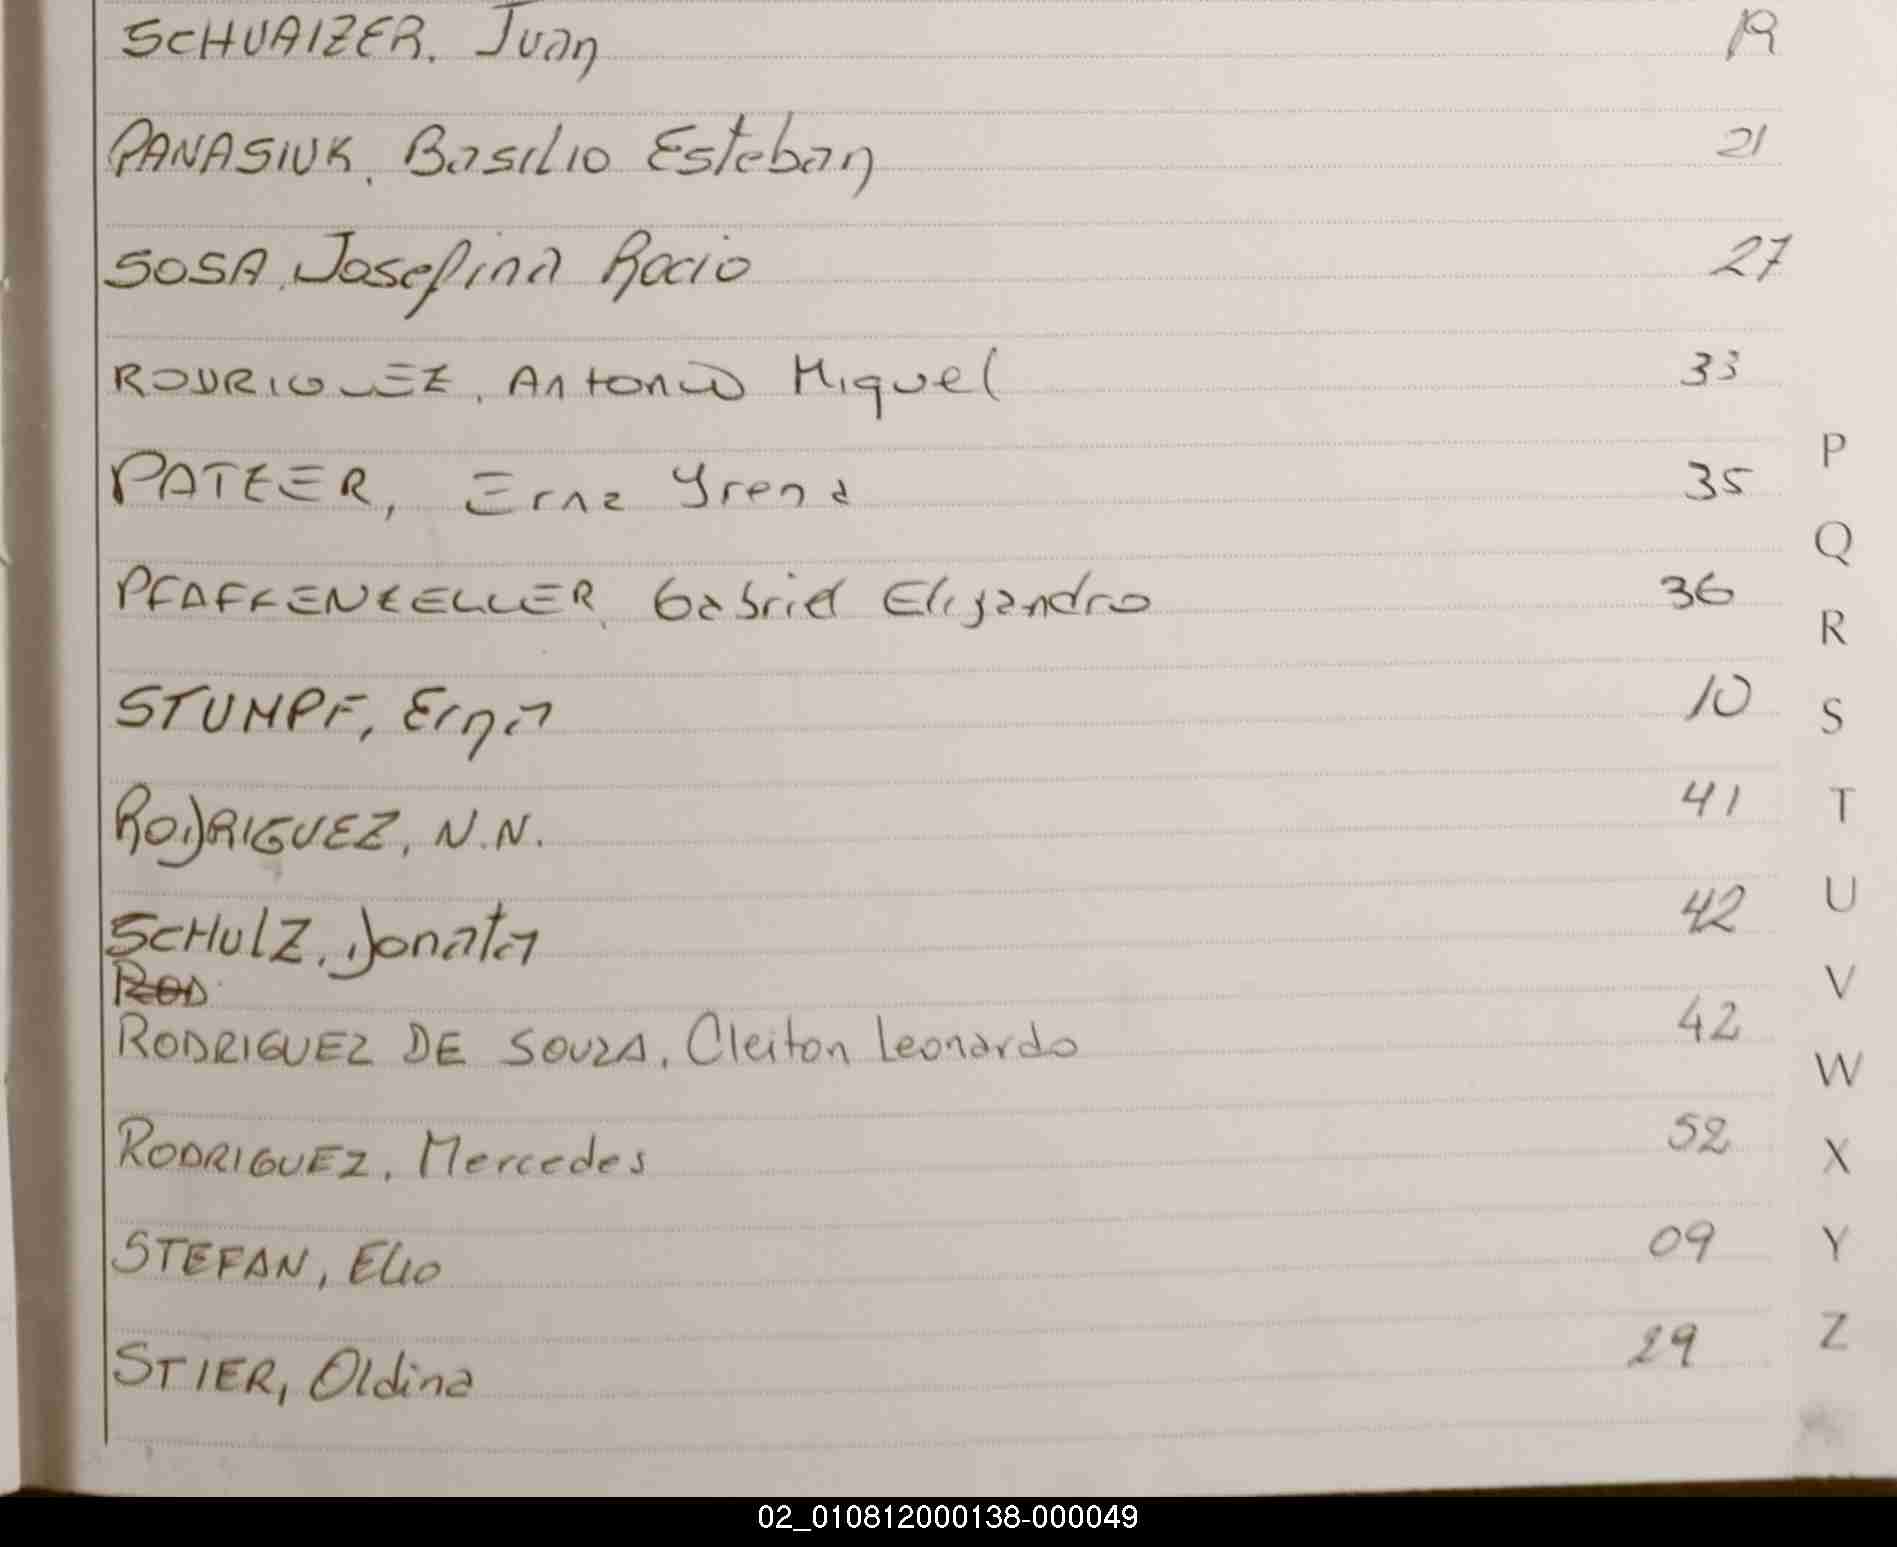 SCHUAIZER, Juan 19
PANASIUK, Basilio Esteban 21
SOSA, Josefina Rocio 27
RODRIGUEZ, Antonio Miguel 33
PATZER, Erna Yrena 35
PFAFFENZELLER, Gabriel Elijandro 36
STUMPF, Erna 10
RODRIGUEZ, N.N. 41
SCHULZ, Donata 42
ROD
RODRIGUEZ DE SOUZA, Cleiton Leonardo 42
RODRIGUEZ, Mercedes 52
STEFAN, Elio 09
STIER, Oldina 29
P
Q
R
S
T
U
V
W
X
Y
Z
02_010812000138-000049